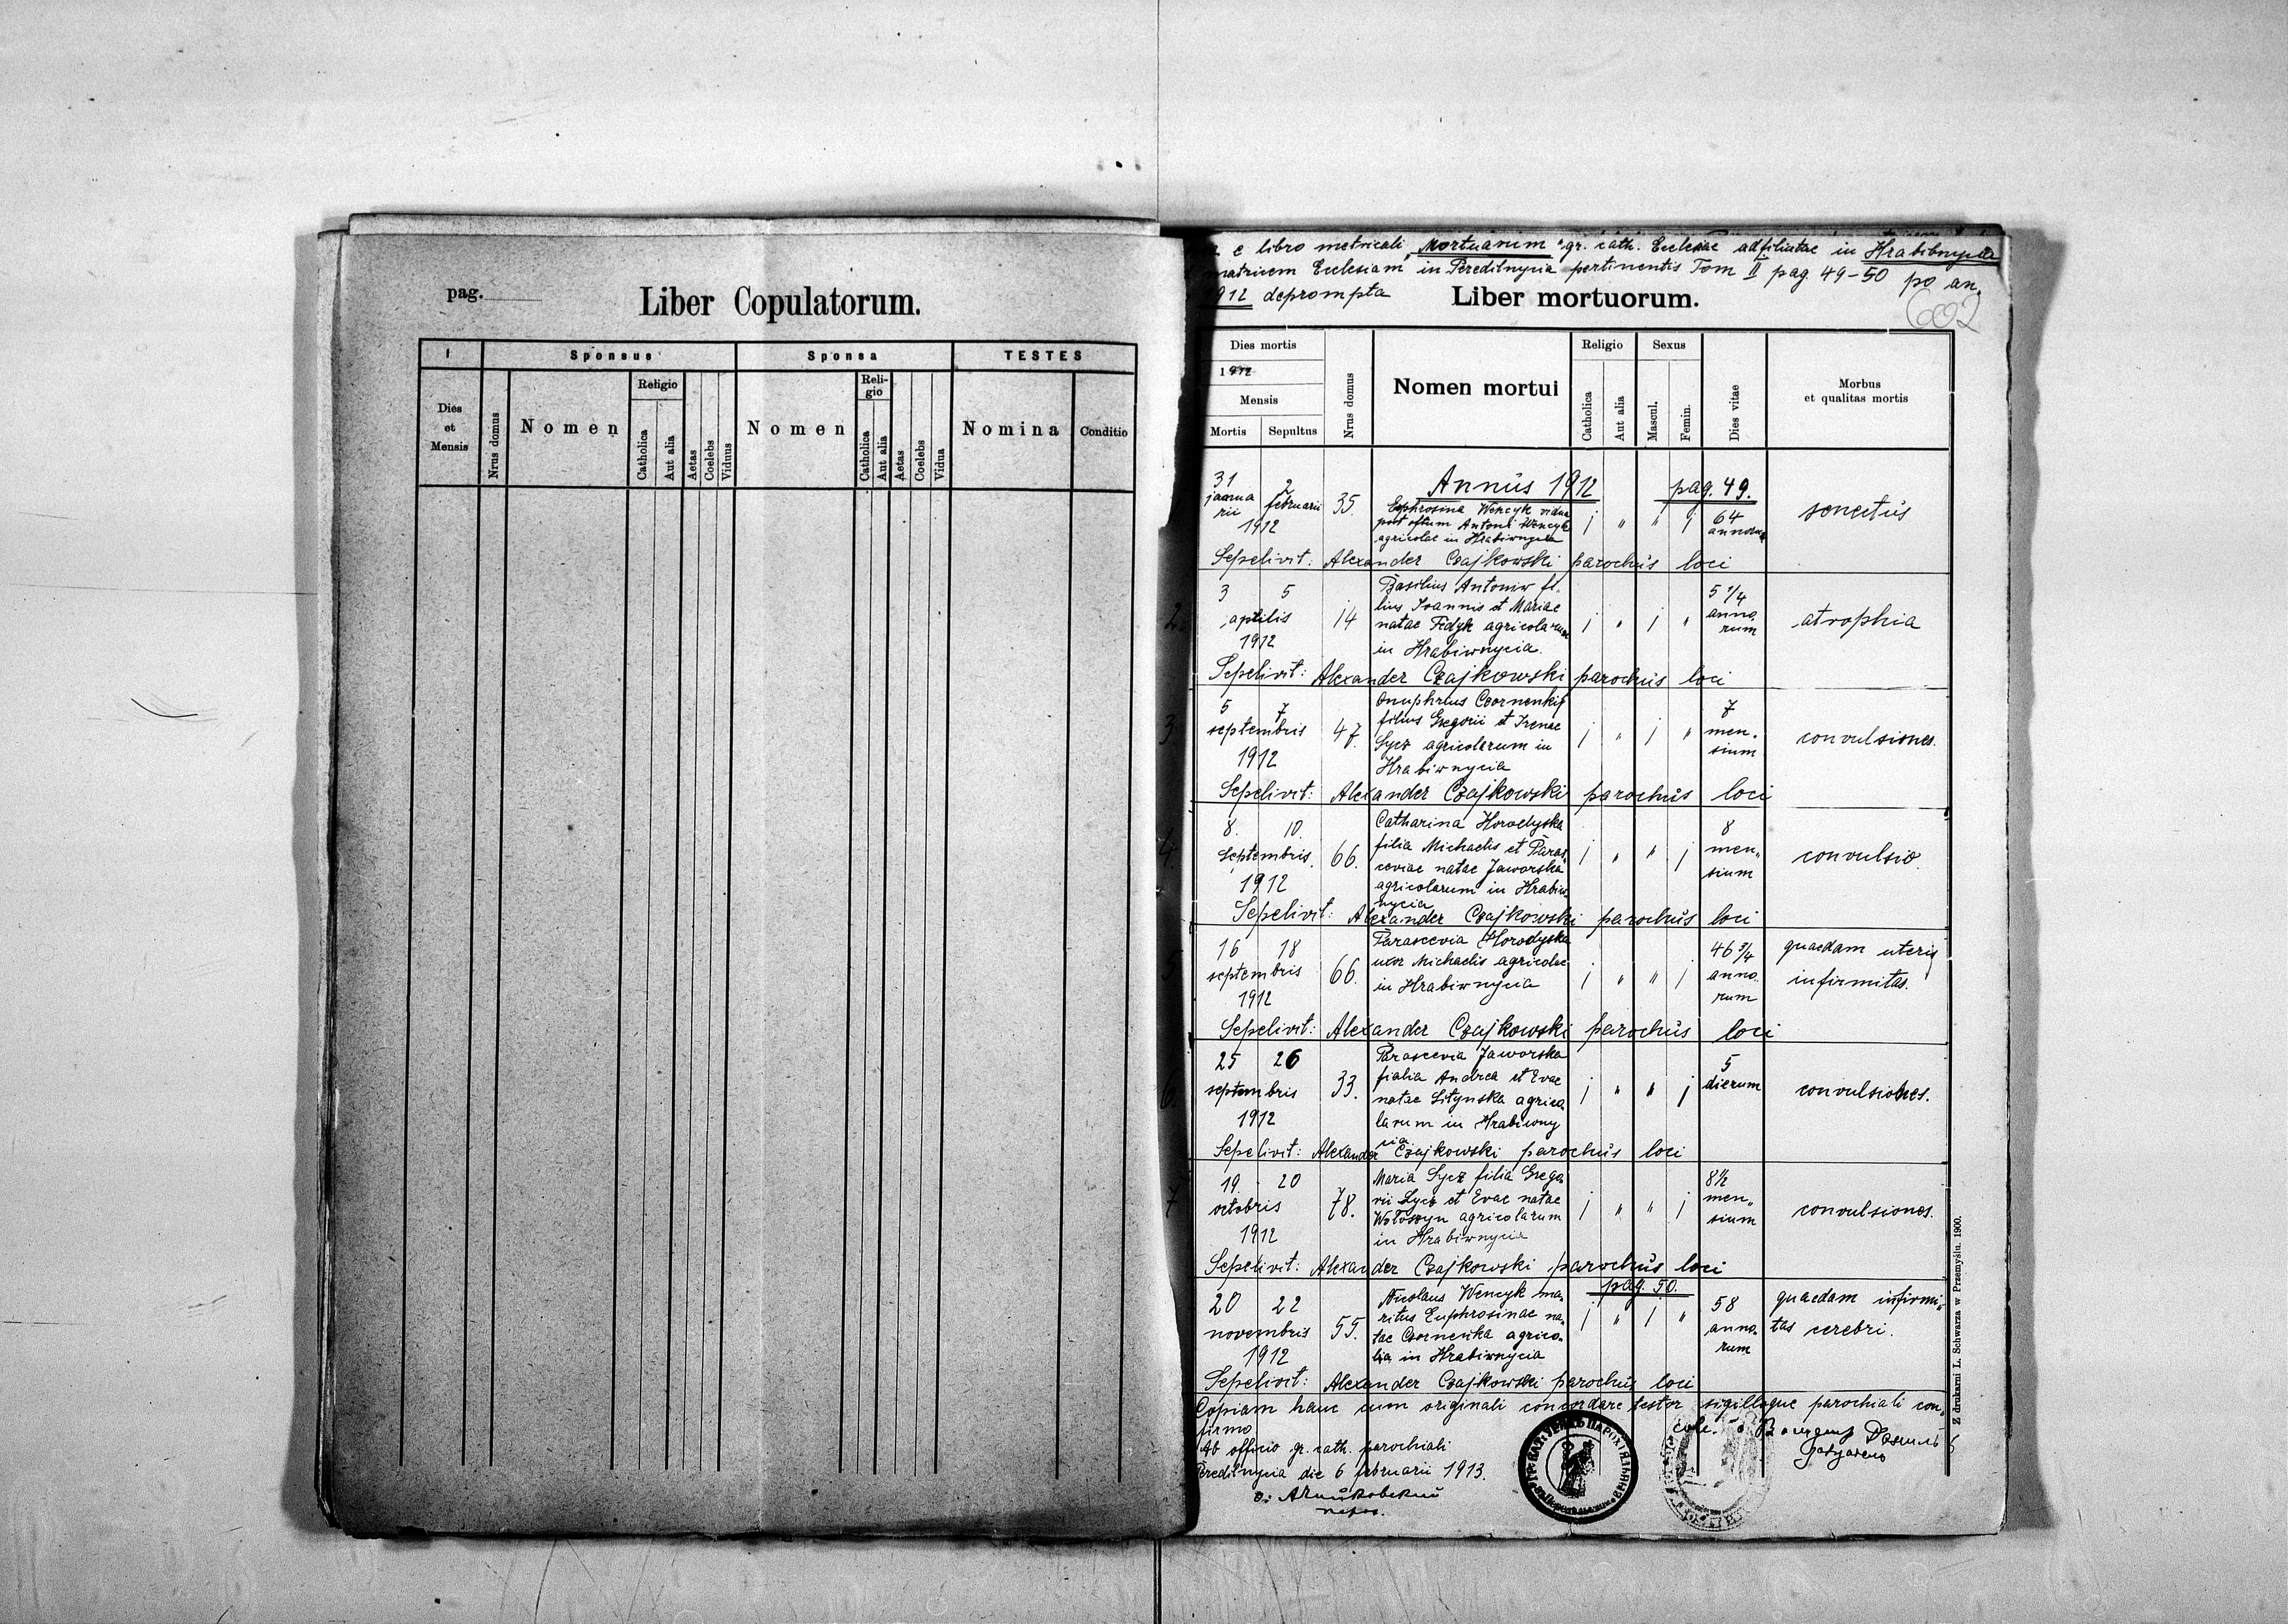 pag.
Liber Copulatorum.
1
Sponsus
Sponsa
TESTES
Dies et Mensis
Nrus domus
Nomen
Religio
Catholica
Aut alia
Aetas
Coelebs
Viduus
Nomen
Reli-
gio
Catholica
Aut alia
Aetas
Coelebs
Vidua
Nomina
Conditio
e libro metricali „Mortuarum" gr. cath. Ecclesiae adfiliatae in Hrabibnycia
matricem Ecclesiam in Peredilnycia pertinentis Tom II pag. 49-50 po an.
1912 deprompta
Liber mortuorum.
602
Dies mortis
1912
Mensis
Mortis
Sepultus
Nrus domus
Nomen mortui
Religio
Catholica
Aut alia
Sexus
Mascul.
Femin.
Dies vitae
Morbus
et qualitas mortis
Annus 1912 pag. 49.
31 januarii 2 februarii 1912
35.
Euphrosina Wencyk vidua
post oftum Antoni Wencyk
agricolae in Hrabiwnycia
1 " " 1
64 annorum
senectus
Sepelivit: Alexander Czajkowski parochus loci
2.
3 5 aprilis 1912
14
Basilius Antoniw fi-
lius Ioannis et Mariae
natae Fedyk agricolarum
in Hrabiwnycia.
1 " 1 "
5 1/4 annorum
atrophia
Sepelivit: Alexander Czajkowski parochus loci
3.
5 7 septembris 1912
47.
Onuphrius Czornenkij
filius Gregorii et Irenae
Sycz agricolarum in
Hrabiwnycia
1 " 1 "
7 mensium
convulsiones.
Sepelivit: Alexander Czajkowski parochus loci
4.
8. 10. Septembris 1912
66.
Catharina Horodyska
filia Michaelis et Paras-
ceviae natae Jaworska
agricolarum in Hrabiw-
nycia
1 " " 1
8 mensium
convulsio.
Sepelivit: Alexander Czajkowski parochus loci
5
16 18 septembris 1912
66.
Parascevia Horodyska
uxor Michaelis agricolae
in Hrabiwnycia
1 " " 1
46 3/4 annorum
quaedam uteris
infirmitas.
Sepelivit: Alexander Czajkowski parochus loci
6.
25 26 septembris 1912
33.
Parascevia Jaworska
fialia Andrea et Evae
natae Litynska agrico-
larum in Hrabiwny
cia
1 " " 1
5 dierum
convulsiones.
Sepelivit: Alexander Czajkowski parochus loci
7
19. 20 octobris 1912
78.
Maria Sycz filia Grego-
rii Sycz et Evae natae
Wołoszyn agricolarum
in Hrabiwnycia
1 " " 1
8 1/2 mensium
convulsiones.
Sepelivit: Alexander Czajkowski parochus loci
pag. 50.
20 22 novembris 1912
55.
Nicolaus Wencyk ma-
ritus Euphrosinae na-
tae Czornenka agrico-
la in Hrabiwnycia
1 " 1 "
58 annorum
quaedam infirmi-
tas cerebri.
Sepelivit: Alexander Czajkowski parochus loci
Copiam hanc cum originali concordare testor sigilloque parochiali con-
firmo
Ab officio gr. cath. parochiali
Peredilnycia die 6 februarii 1913.
Z drukarni L. Schwarza w Przemyślu. 1900.